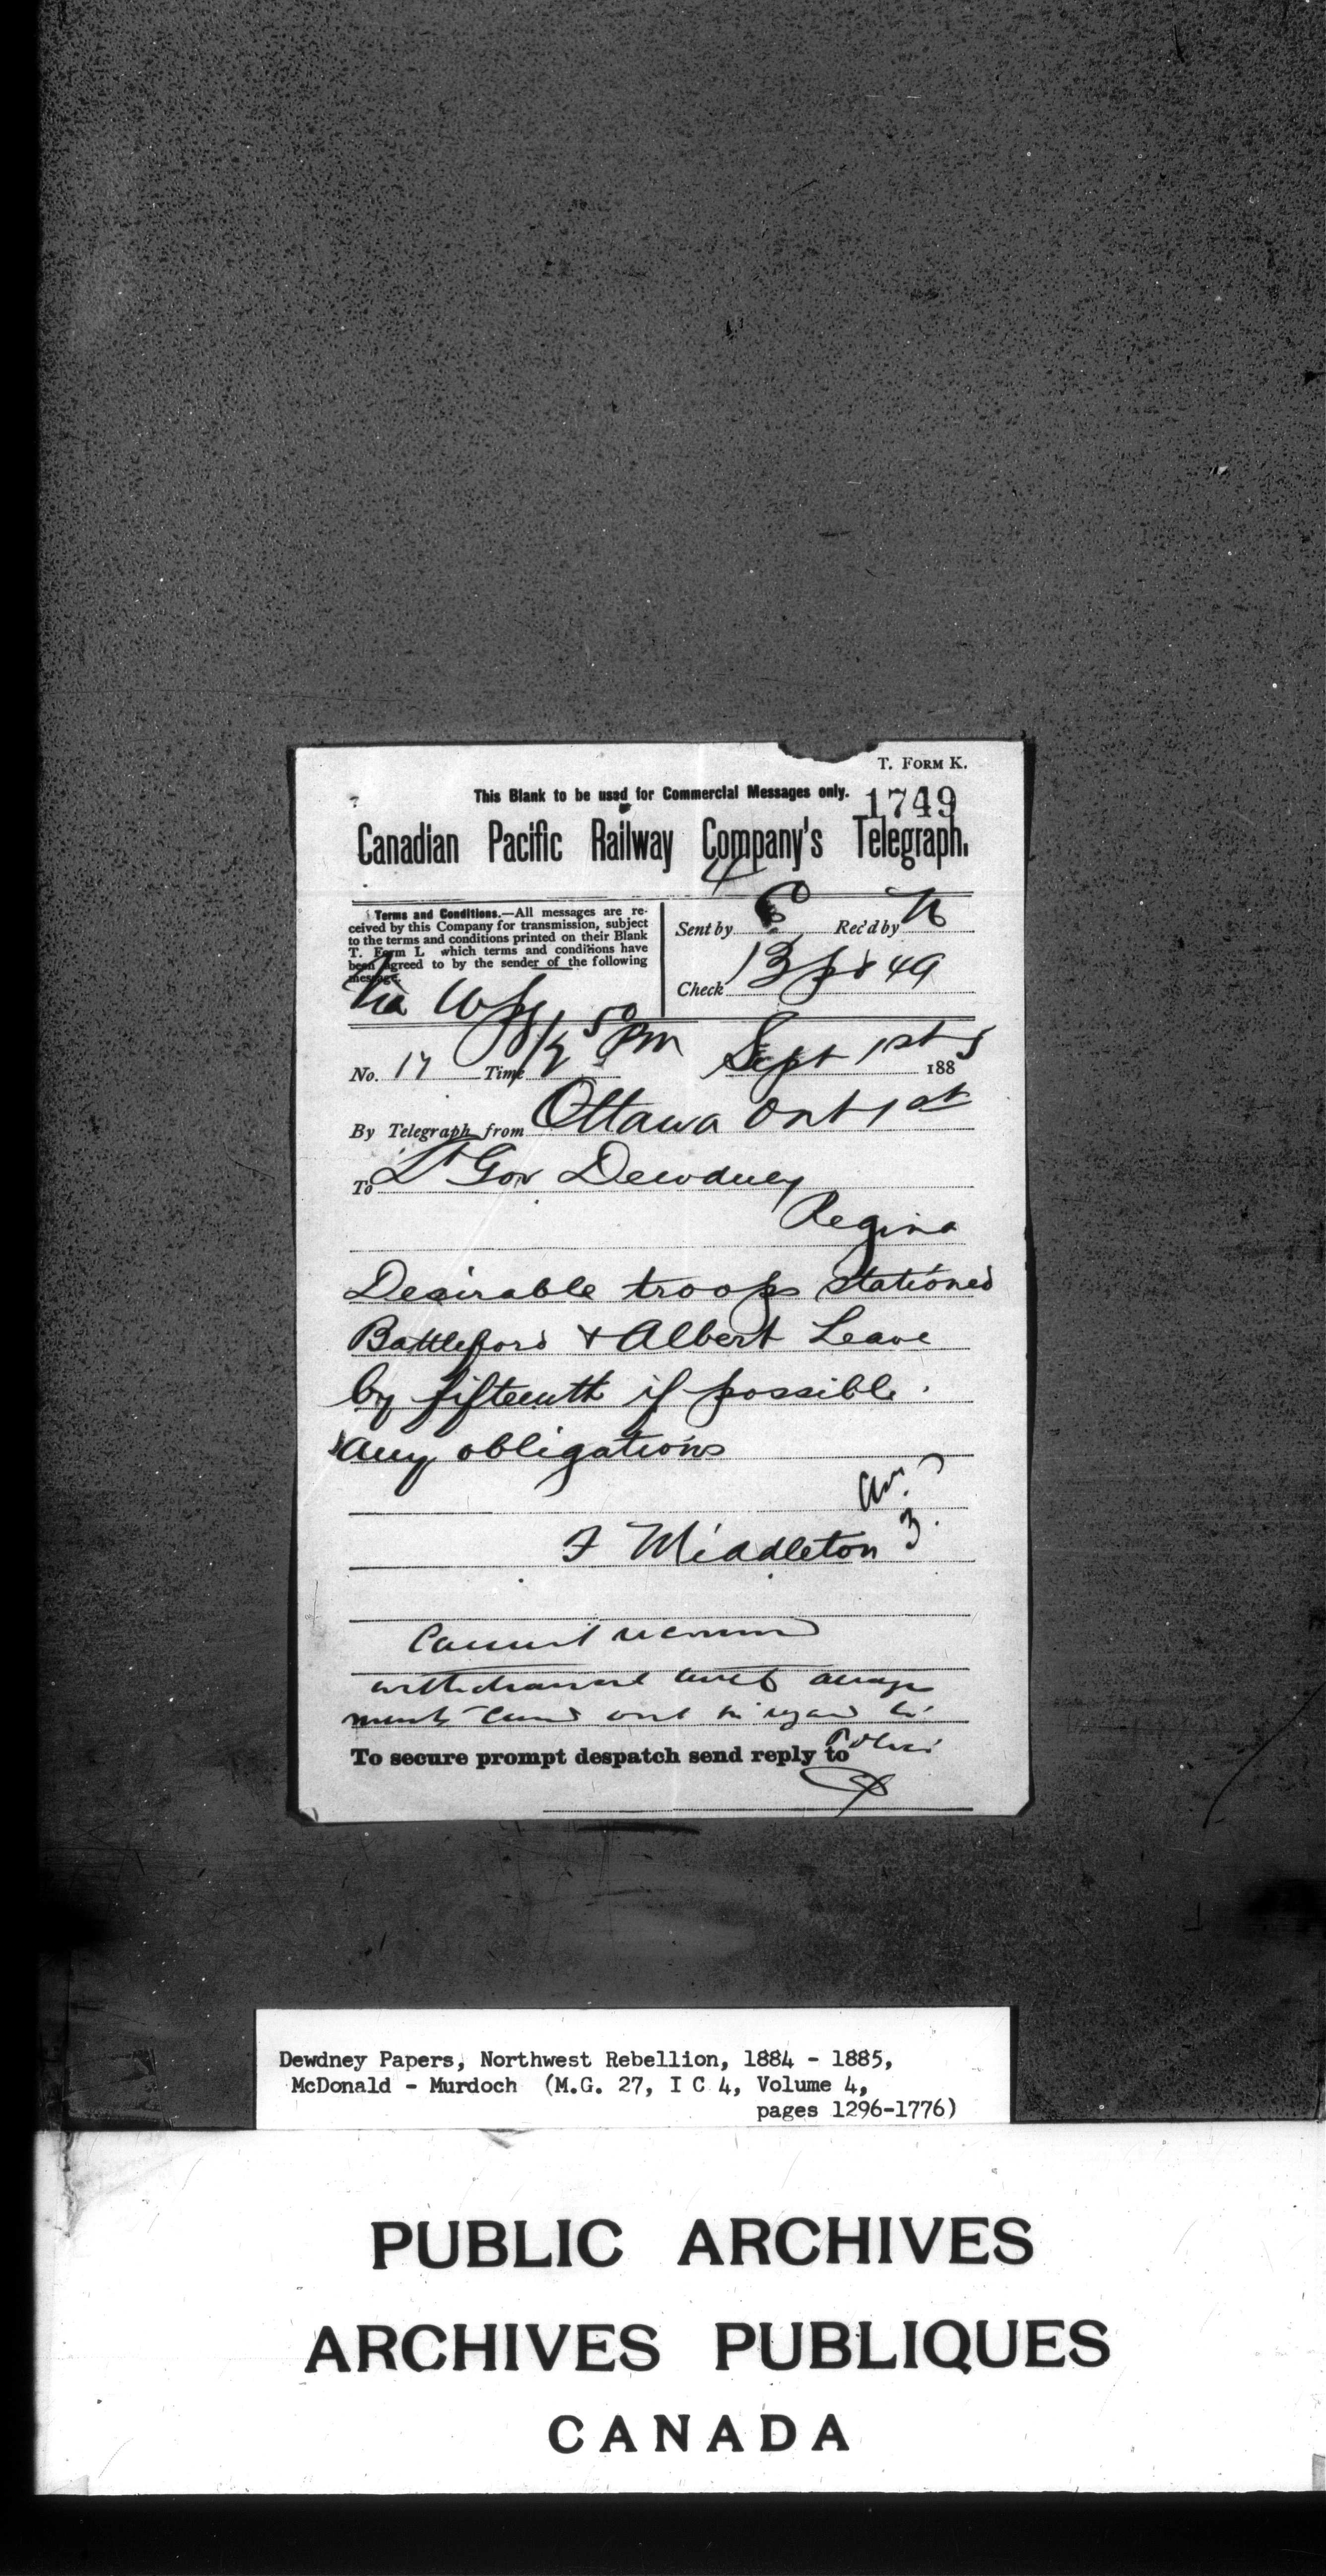 T. FORM K.
This Blank to be used for Commercial Messages only.
1749
Canadian Pacific Railway Company's Telegraph.
4
Terms and Conditions.—All messages are re-
ceived by this Company for transmission, subject
to the terms and conditions printed on their Blank
T. Form L which terms and conditions have
been agreed to by the sender of the following
message.
Sent by Rec'd by
Check 13 49
Via Wpg
No. 17 Time 50 Pm Sept 1st 1885
By Telegraph from Ottawa Ont 1st
To Lt Gov Dewdney
Regina
Desirable troops stationed
Battleford + Albert Leave
by fifteenth if possible.
any obligations
Ans.
3.
F Middleton
Cannot recommend
withdrawal until arrange
ments carried out in regard to
Police
To secure prompt despatch send reply to
Dewdney Papers, Northwest Rebellion, 1884 - 1885,
McDonald - Murdoch (M.G. 27, I C 4, Volume 4,
pages 1296-1776)
PUBLIC ARCHIVES
ARCHIVES PUBLIQUES
CANADA